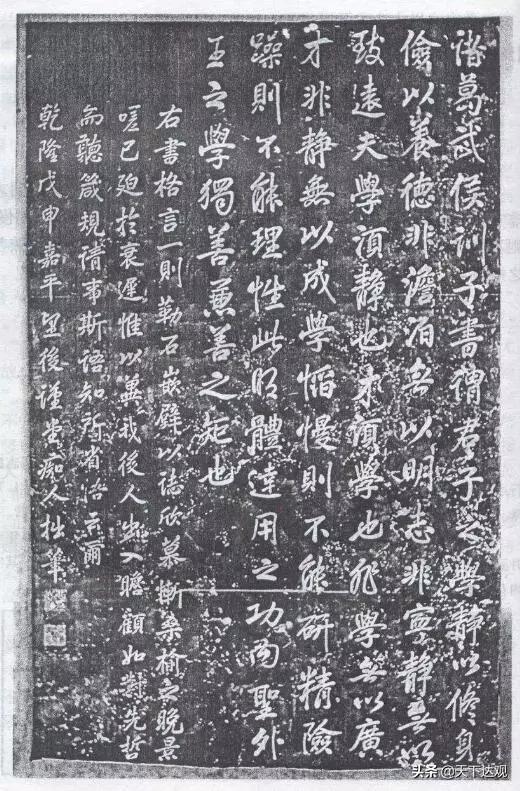 諸葛武侯訓子書謂君子之學靜以修身
儉以養德非澹泊無以明志非寧靜無以
致遠夫學須靜也才須學也非學無以廣
才非靜無以成學慆慢則不能研精險
躁則不能理性此明體達用之功內聖外
王之學獨善兼善之軌也
右書格言一則勒石嵌壁以誌欣慕慚桑榆之晚景
嗟已廹於衰遲惟以冀我後人出入瞻顧如對先哲
而聽箴規請事斯語知所省治云爾
乾隆戊申嘉平望後謹堂痴人拙筆
头条 @天下达观